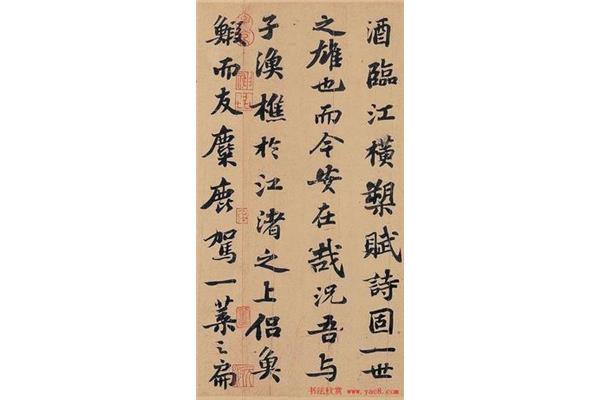 酒臨江橫槊賦詩固一世
之雄也而今安在哉況吾與
子漁樵於江渚之上侶魚
鰕而友麋鹿駕一葉之扁
书法欣赏 www.yac8.com